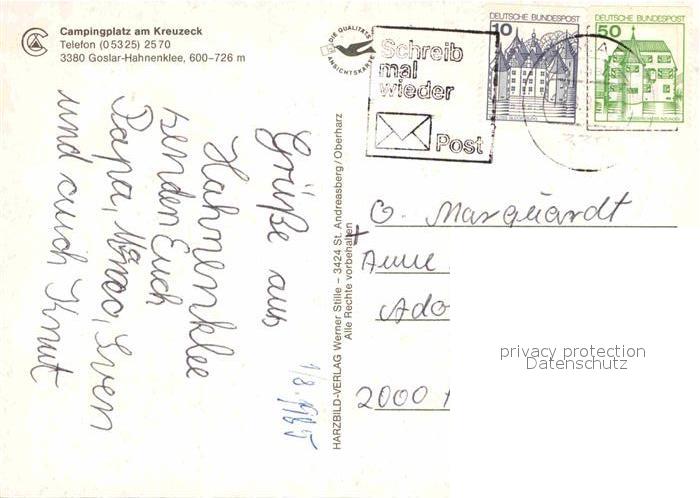 Campingplatz am Kreuzeck
Telefon (0 53 25) 25 70
3380 Goslar-Hahnenklee, 600–726 m
DIE QUALITÄTS
ANSICHTSKARTE
Schreib
mal
wieder
Post
DEUTSCHE BUNDESPOST
10
DEUTSCHE BUNDESPOST
50
Grüße aus
Hahnenklee
senden Euch
Papa, Mama, Sven
und auch Knut
1/8. 1985
HARZBILD-VERLAG Werner Stille – 3424 St. Andreasberg/Oberharz
Alle Rechte vorbehalten
O. Marquardt
+
Anne
Ado
2000
privacy protection
Datenschutz